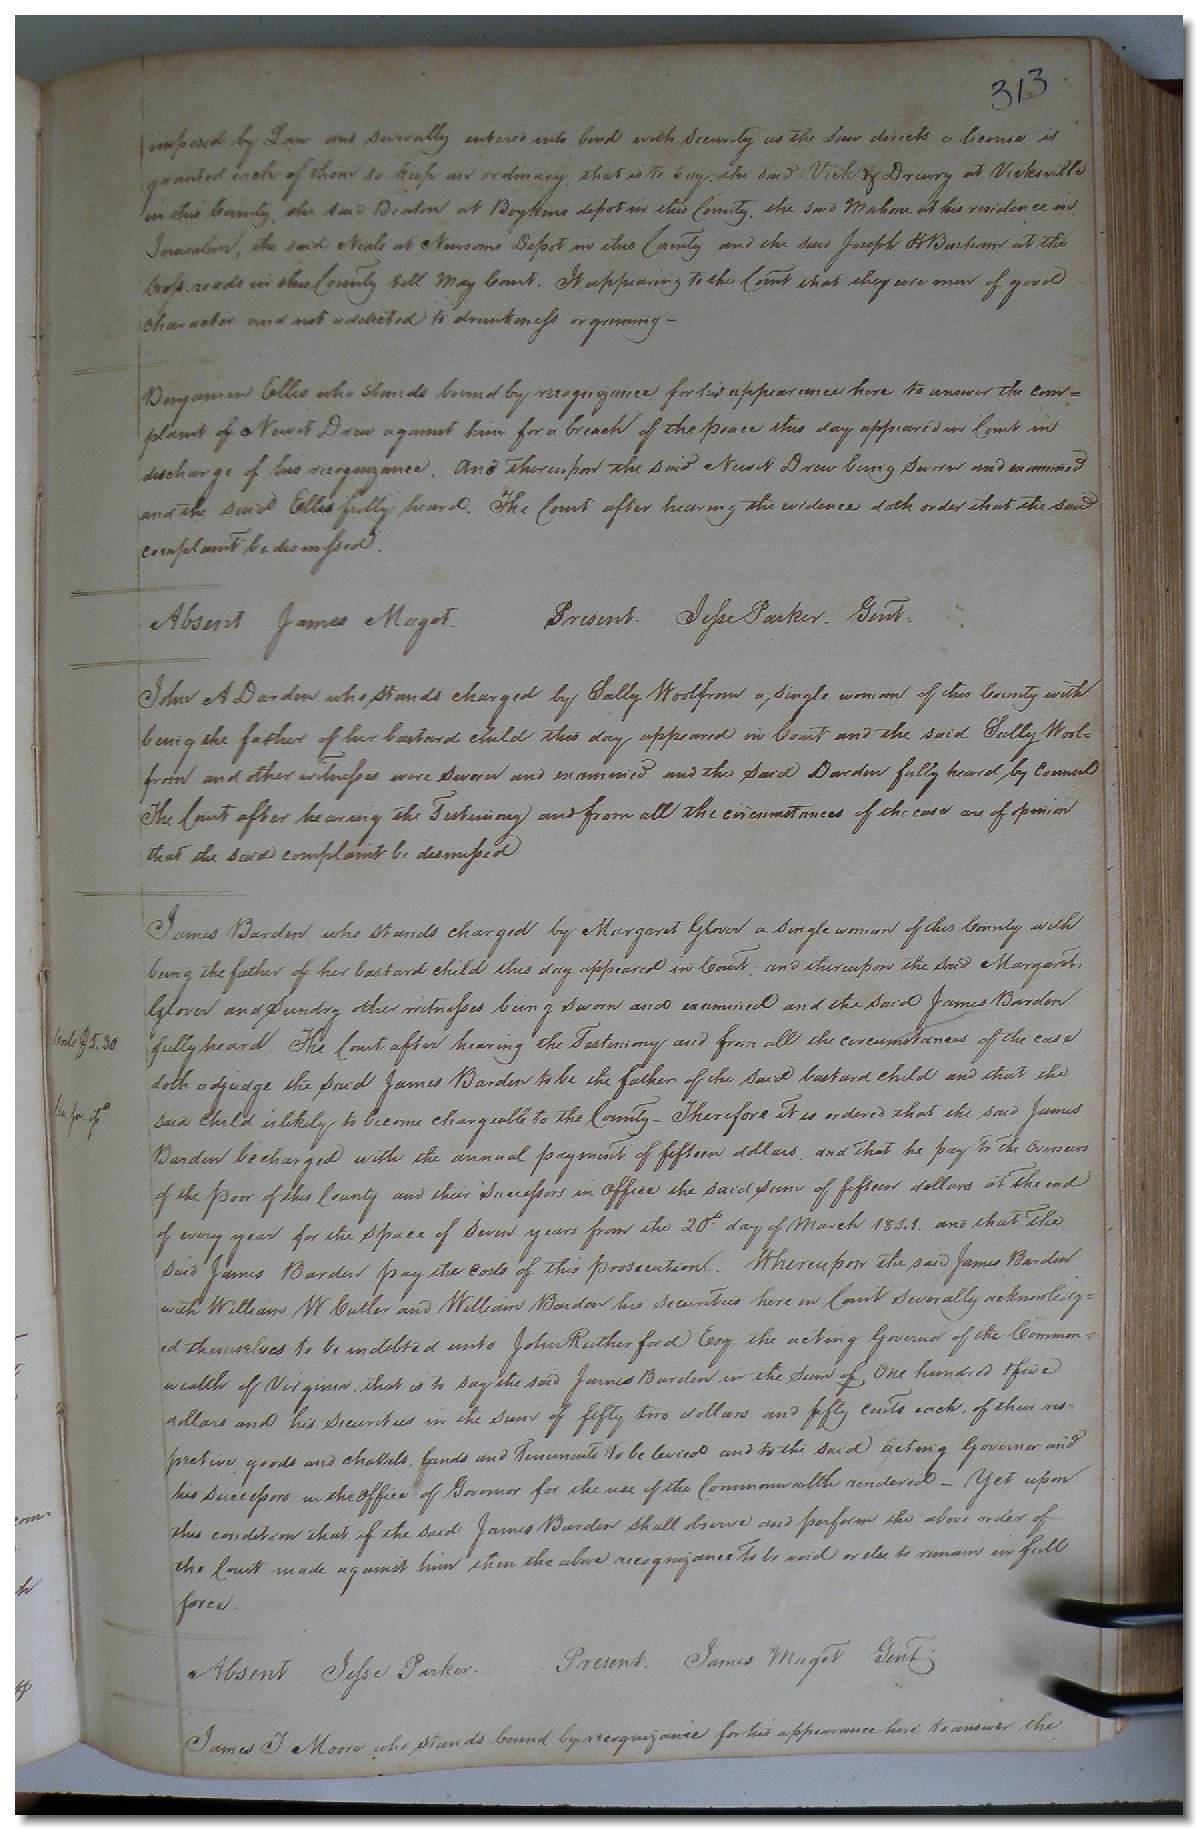 313
imposed by Law and severally entered into bond with security as the Law directs a license is
granted each of them to keep an ordinary, that is to say, the said Vick & Drewry at Vicksville
in this County, the said Beaton at Boykins depot in this County, the said Mahone at his residence in
Jerusalem, the said Neale at Newsoms Depot in this County and the said Joseph H Barham at the
Cross roads in this County till May Court. It appearing to the Court that they are men of good
character and not addicted to drunkeness or gaming -
Benjamin Ellis who stands bound by recognizance for his appearance here to answer the com=
plaint of Newit Drew against him for a breach of the peace this day appeared in Court in
discharge of his recognizance. And thereupon the said Newit Drew being sworn and examined
and the said Ellis fully heard. The Court after hearing the evidence doth order that the said
complaint be dismissed.
Absent James Maget. Present. Jesse Parker. Gent.
John A Darden who stands charged by Sally Woolfrom a single woman of this County with
being the father of her bastard child this day appeared in Court and the said Sally Wool=
from and other witnesses were sworn and examined and the said Darden fully heard by Counsel
The Court after hearing the Testimony and from all the circumstances of the case are of opinion
that the said complaint be dismissed
James Barden who stands charged by Margaret Glover a single woman of this County with
being the father of her bastard child this day appeared in Court, and thereupon the said Margaret
Glover and Sundry other witnesses being sworn and examined and the said James Barden
Costs $5.30
fully heard. The Court after hearing the Testimony and from all the circumstances of the case
doth adjudge the said James Barden to be the father of the said bastard child and that the
said child is likely to become chargeable to the County - Therefore it is ordered that the said James
Barden be charged with the annual payment of fifteen dollars. and that he pay to the Overseers
of the poor of this County and their successors in office the said sum of fifteen dollars at the end
of every year for the space of Seven years from the 20th day of March 1841. and that the
said James Barden pay the costs of this prosecution. Whereupon the said James Barden
with William W Cutler and William Barden his securities here in Court severally acknowledg=
ed themselves to be indebted unto John Rutherford Esq. the acting Governor of the Common=
wealth of Virginia. that is to say the said James Barden in the sum of One hundred & five
dollars and his securities in the sum of fifty two dollars and fifty cents each. of their res-
pective goods and chattels, lands and tenements to be levied and to the said acting Governor and
his successors in the office of Govenor for the use of the Commonwealth rendered - Yet upon
this condition that if the said James Barden shall observe and perform the above order of
the Court made against him then the above recognizance to be void or else to remain in full
force.
Absent Jesse Parker. Present. James Maget Gent.
James T Moore who stands bound by recognizance for his appearance here to answer the